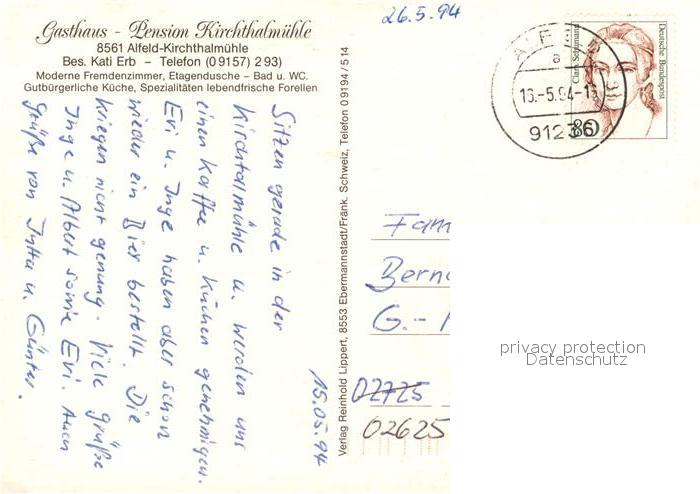 Gasthaus - Pension Kirchthalmühle
8561 Alfeld-Kirchthalmühle
Bes. Kati Erb - Telefon (0 91 57) 2 93)
Moderne Fremdenzimmer, Etagendusche - Bad u. WC.
Gutbürgerliche Küche, Spezialitäten lebendfrische Forellen
15.05.94
Sitzen gerade in der
Kirchtalmühle u. werden uns
einen Kaffee u. Kuchen genehmigen.
Evi u. Inge haben aber schon
wieder ein Bier bestellt. Die
kriegen nicht genung. Viele Grüße
Inge u. Albert sowie Evi. Auch
Grüße von Jutta u. Günter.
Verlag Reinhold Lippert, 8553 Ebermannstadt/Fränk. Schweiz, Telefon 0 91 94 / 5 14
26.5.94
ALF
a
16.-5.94-16
91236
Clara Schumann
Deutsche Bundespost
80
Fam
Bern
G.-
02725
02625
privacy protection
Datenschutz